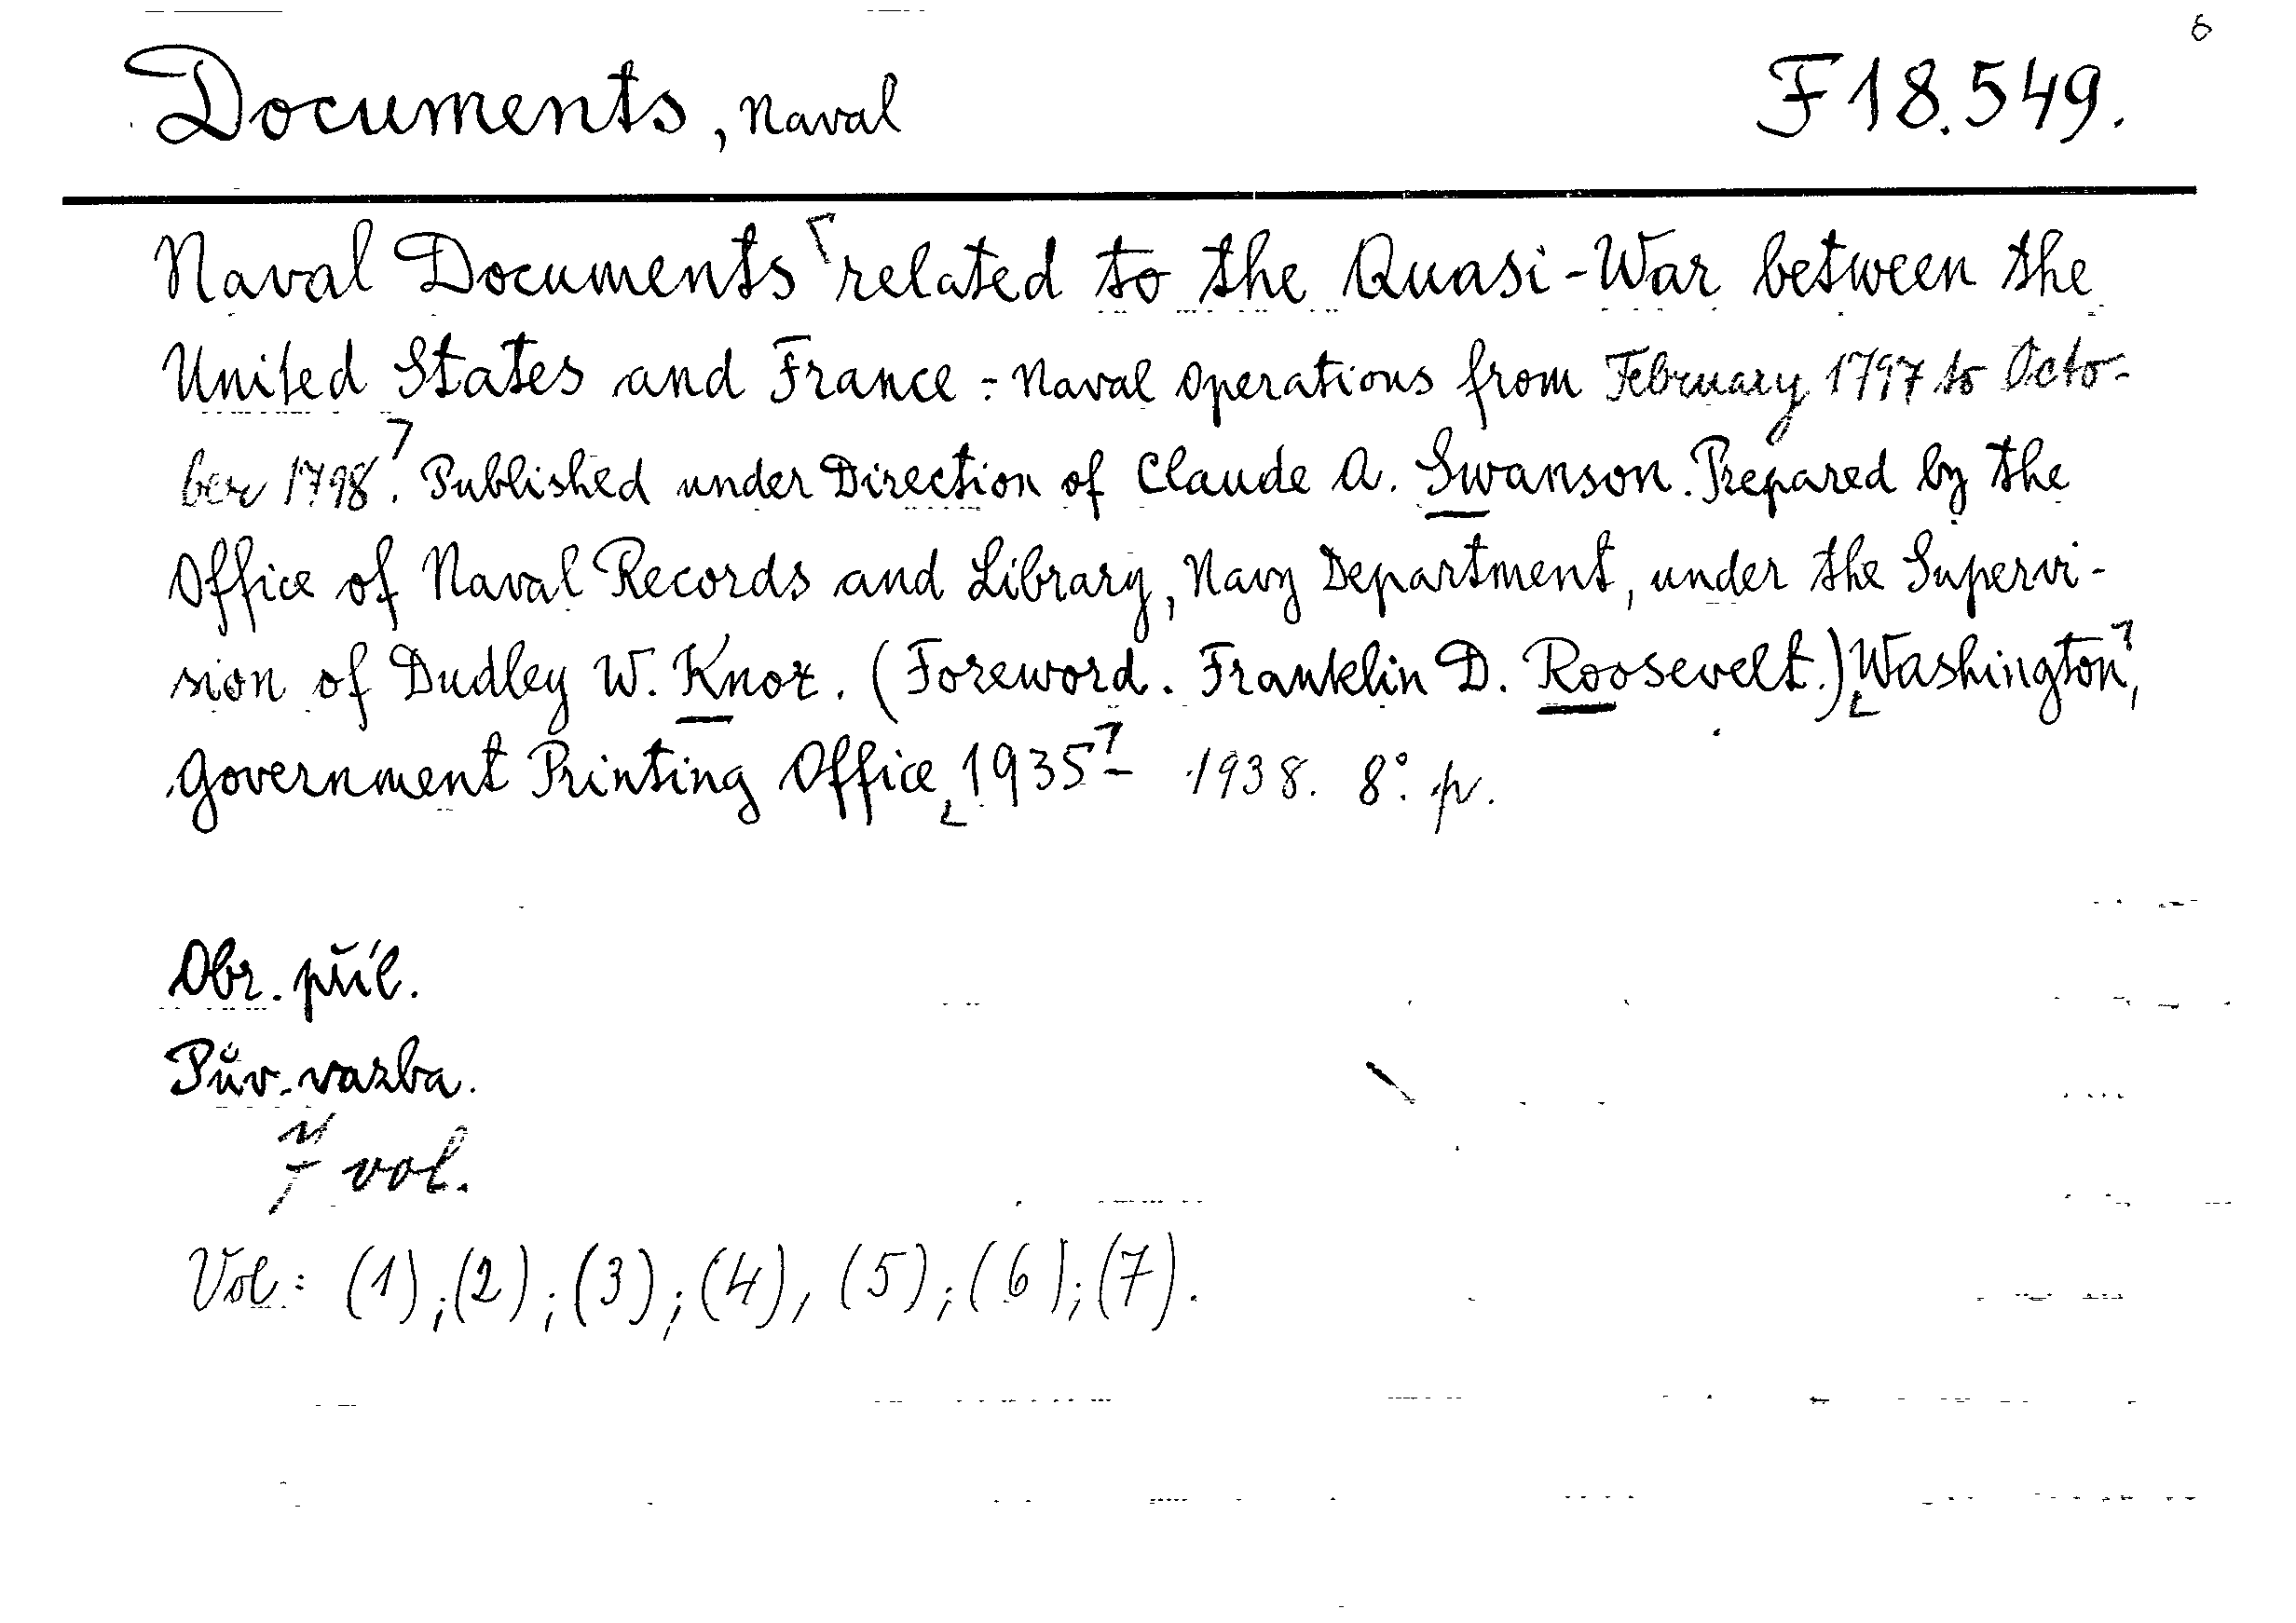 6
Documents, Naval F 18.549.
Naval Documents ⌈related to the Quasi-War between the
United States and France - Naval Operations from February 1797 to Octo-
ber 1798⌉. Published under Direction of Claude A. Swanson. Prepared by the
Office of Naval Records and Library, Navy Department, under the Supervi-
sion of Dudley W. Knox. (Foreword. Franklin D. Roosevelt.) ⌊Washington⌉,
Government Printing Office ⌊1935⌉- 1938. 8°. p.
Obr. příl.
Pův. vazba.
7 vol.
Vol: (1); (2); (3); (4), (5); (6); (7).